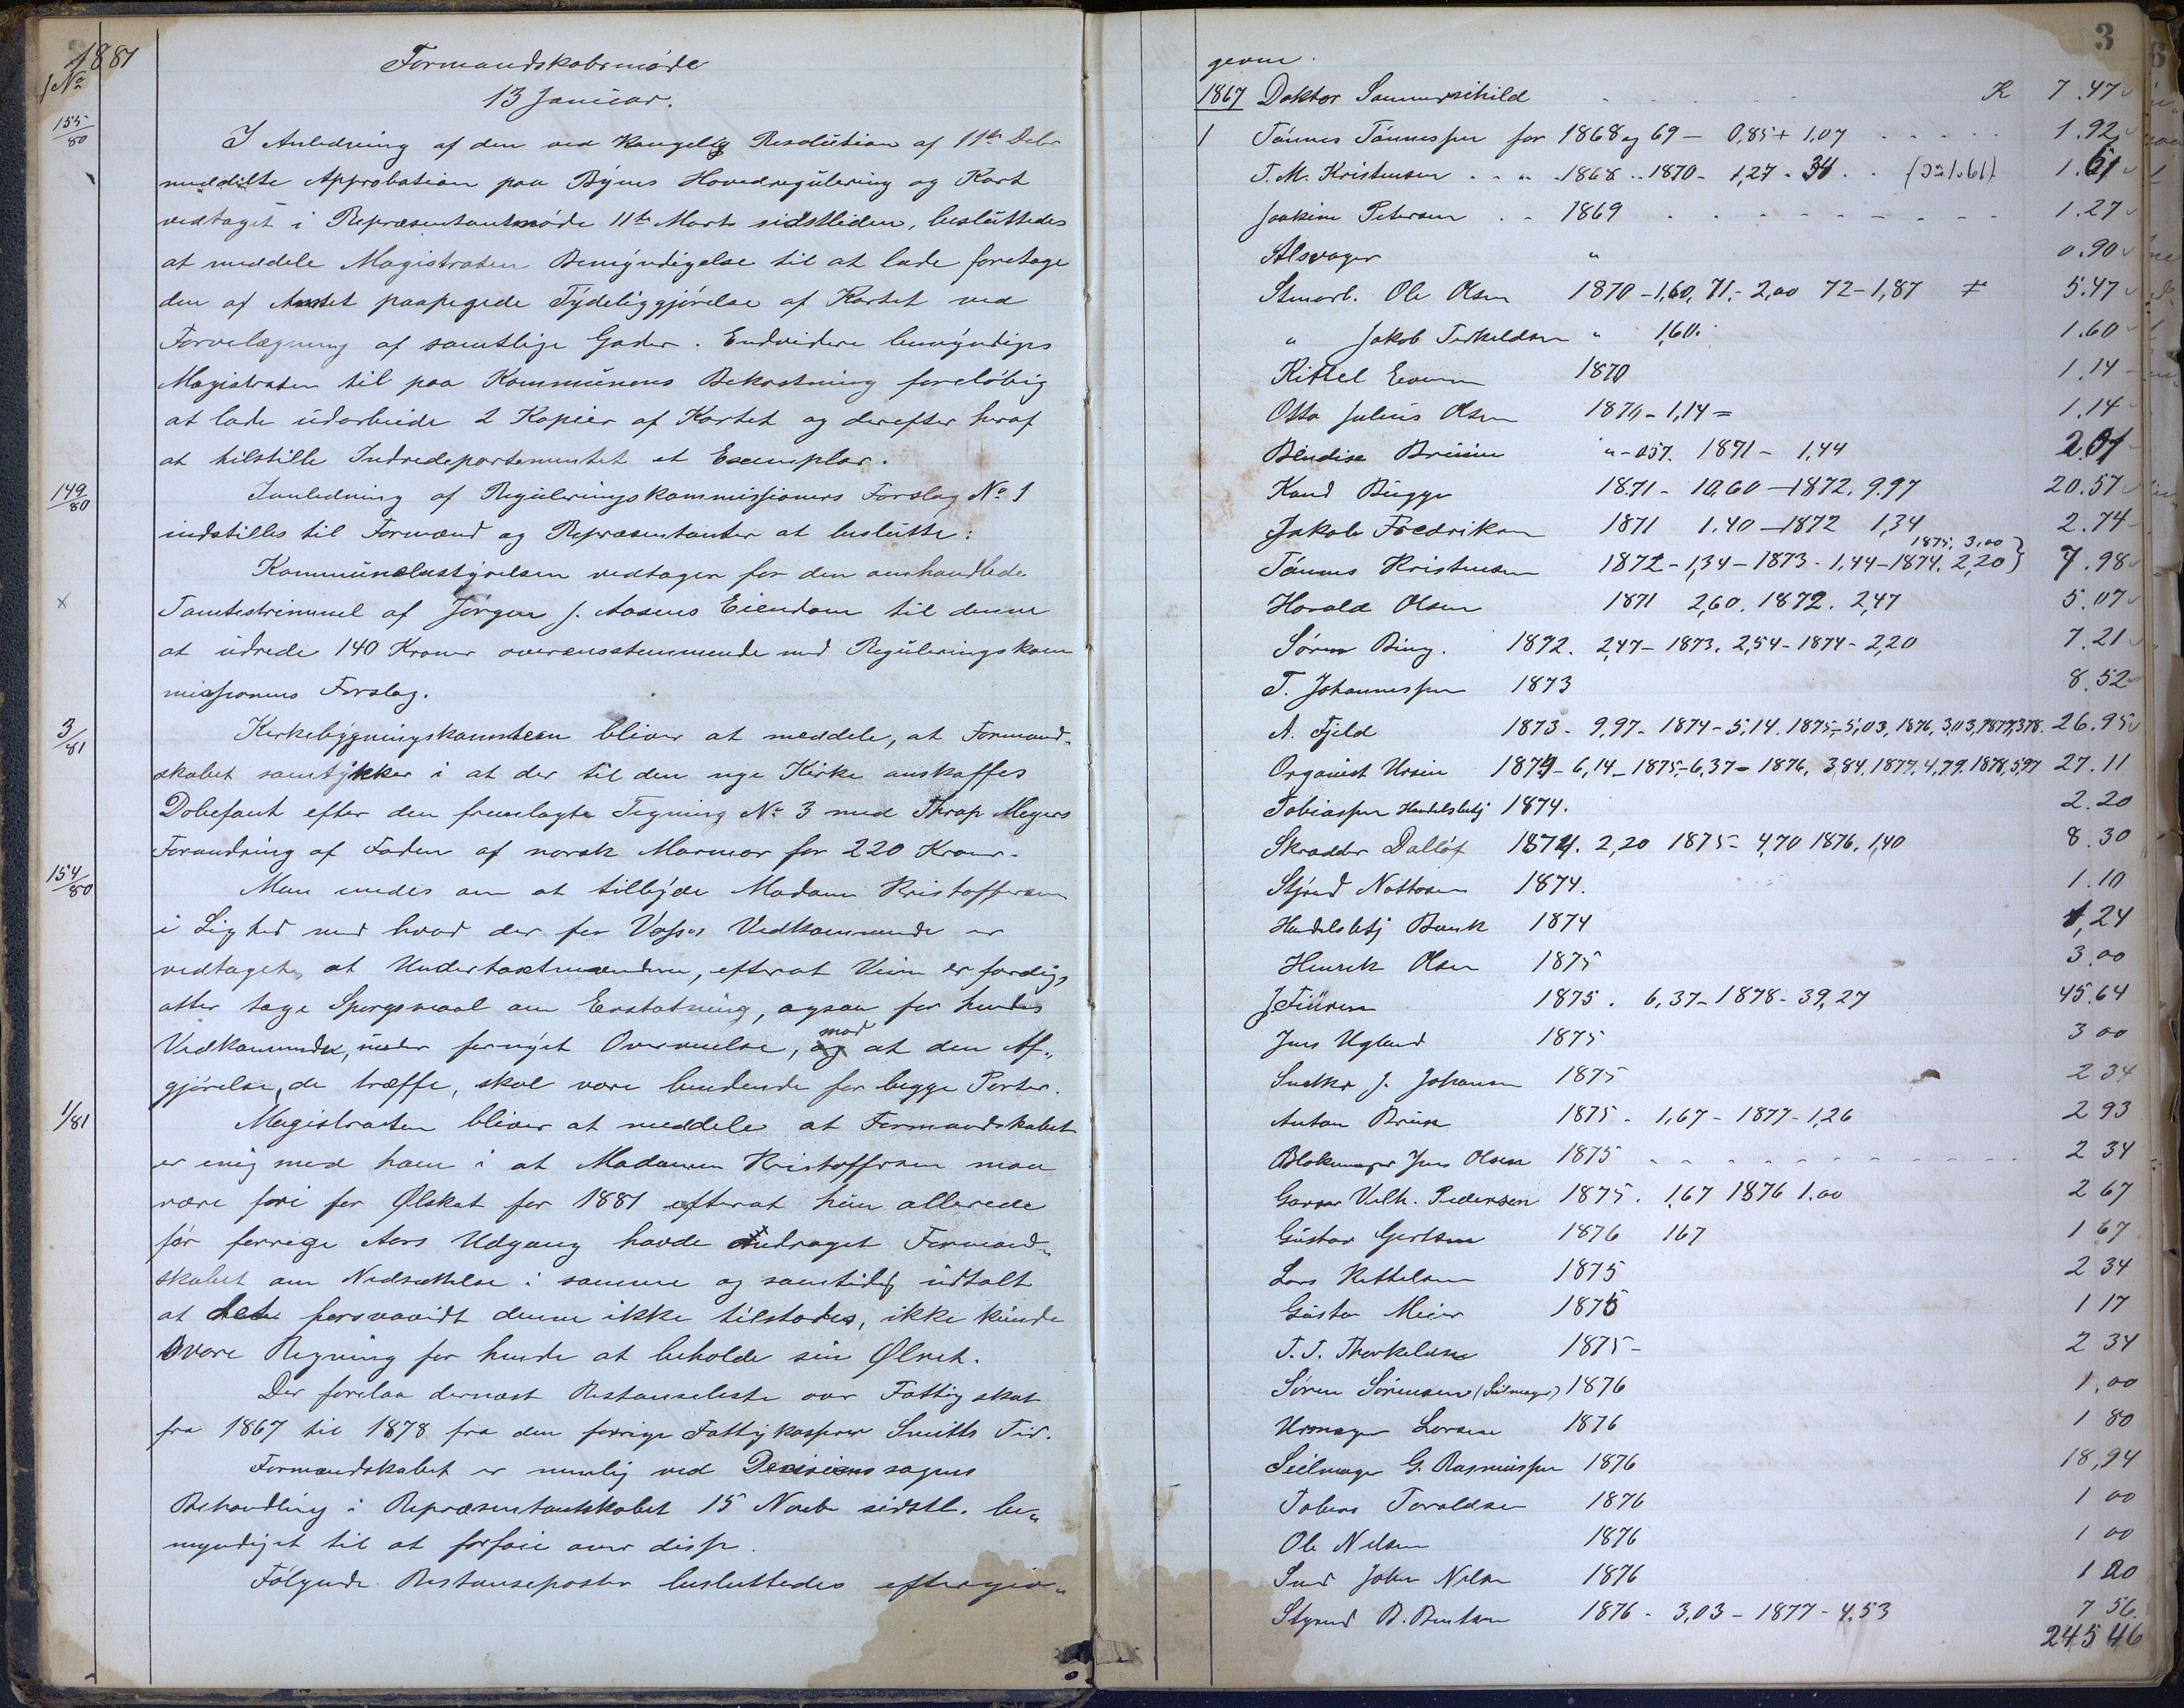 1881
J No
Formandskabsmøde
13 Januar.
155/80
I Anledning af den ved kongelig Resolution af 11te Debr
meddelte Approbation paa Byens Hovedregulering og Kart
vedtaget i Repræsentantmøde 11te Marts sidstleden, besluttedes
at meddele Magistraten Bemyndigelse til at lade foretage
den af Amtet paapegede Tydeliggjørelse af Kartet ved
Farvelægning af samtlige Gader. Endvidere bemyndiges
Magistraten til paa Kommunens Bekostning foreløbig
at lade udarbeide 2 Kopier af Kartet og derefter heraf
at tilstille Indredepartementet et Exemplar.
149/80
Ianledning af Reguleringskommissionens Forslag No 1
indstilles til Formænd og Repræsentanter at beslutte:
Kommunebestyrelsen vedtager for den omhandlede
x
Tomtestrimmel af Jørgen J. Aasens Eiendom til denne
at udrede 140 Kroner overensstemmende med Reguleringskom
missionens Forslag.
3/81
Kirkebygningskomiteen bliver at meddele, at Formand-
skabet samtykker i at der til den nye Kirke anskaffes
Døbefont efter den fremlagte Tegning No 3 med Thrap Meyers
Forandring af Foden af norsk Marmor for 220 Kroner.
154/80
Man enedes om at tilbyde Madam Kristoffersen
i Lighed med hvad der for Vosses Vedkommende er
vedtaget, at Undertaxtmændene, efterat Veien er færdig,
atter tage Spørgsmaal om Erstatning, ogsaa for hendes
Vedkommende, under fornyet Overveielse, og mod at den Af-
gjørelse, de træffe, skal være bindende for begge Parter.
1/81
Magistraten bliver at meddele at Formandskabet
er enig med ham i at Madamen Kristoffersen maa
være fri for Ølskat for 1881 efterat hun allerede
før forrige Aars Udgang havde andraget Formand-
skabet om Nedsættelse i samme og samtidig udtalt
at det forsaavidt denne ikke tilstodes, ikke kunde
svare Regning for hende at beholde sin Ølret.
Der forelaa dernæst Restanseliste over Fattigskat
fra 1867 til 1878 fra den forrige Fattigkasserer Smiths Tid.
Formandskabet er nemlig ved Decisionssagens
Behandling i Repræsentantskabet 15 Novbr sidstl. be-
myndiget til at forføie over disse.
Følgende Restanseposter besluttedes eftergiv-
3
gevne.
1867 Doktor Sommerschild K 7.47
1 Tønnes Tønnessen for 1868 og 69 - 0,85 + 1,07 1.92
T. M. Kristensen " 1868 .. 1870 - 1,27 - 34 (1.61) 1.61
Joakim Petersen 1869 1.27
Alsvager " 0.90
Stenarb. Ole Olsen 1870 - 1,60, 71 - 2,00 72 - 1,87 5.47
" Jakob Terkeldsen " 1,60. 1.60
Kittel Evensen 1870 1.14
Otto Julius Olsen 1870 - 1,14 = 1.14
Bendixe Bruun " - 057. 1871 - 1,44 2.01
Knud Bugge 1871 - 10,60 - 1872. 9.97 20.57
Jakob Fredriksen 1871 1.40 - 1872 1,34 2.74
1875, 3,00
Tønnes Kristensen 1872 - 1,34 - 1873 - 1,44 - 1874. 2,20 7.98
Harald Olsen 1871 2,60. 1872. 2,47 5.07
Søren Bing. 1872. 2,47 - 1873. 2,54 - 1874 - 2,20 7.21
T. Johannessen 1873 8.52
A. Fjeld 1873 - 9,97 - 1874 - 5,14. 1875 - 5,03, 1876, 3,03, 1877, 3,78. 26.95
Organist Ursin 1874 - 6,14 - 1875 - 6,37 - 1876, 3,84. 1877. 4,79. 1878, 5,97 27.11
Tobiassen Handelsbetj 1874. 2.20
Skrædder Dalløf 1874. 2,20 1875 - 4,70 1876. 1,40 8.30
Styrmd Nottosen 1874. 1.10
Handelsbetj Bunk 1874 1,24
Henrik Olsen 1875 3.00
J Fiüren 1875. 6,37 - 1878 - 39,27 45.64
Jens Ugland 1875 3 00
Snedker J. Johansen 1875 2 34
Anton Bruun 1875 - 1,67 - 1877 - 1,26 2 93
Blokmager Jens Olsen 1875 2 34
Garver Vilh. Pedersen 1875. 1,67 1876 1.00 2 67
Gustav Gertsen 1876 167 1 67
Lars Kittelsen 1875 2 34
Gustav Meier 1875 1 17
T. T. Thorkelsen 1875 - 2 34
Søren Sørensen (Seilmager) 1876 1,00
Urmager Larsen 1876 1 80
Seilmager G. Rasmussen 1876 18,94
Tobias Taraldsen 1876 1 00
Ole Nilsen 1876 1 00
Smed John Nilsen 1876 1 20
Styrmd B. Berntsen 1876 - 3,03 - 1877 - 4.53 7 56
245 46